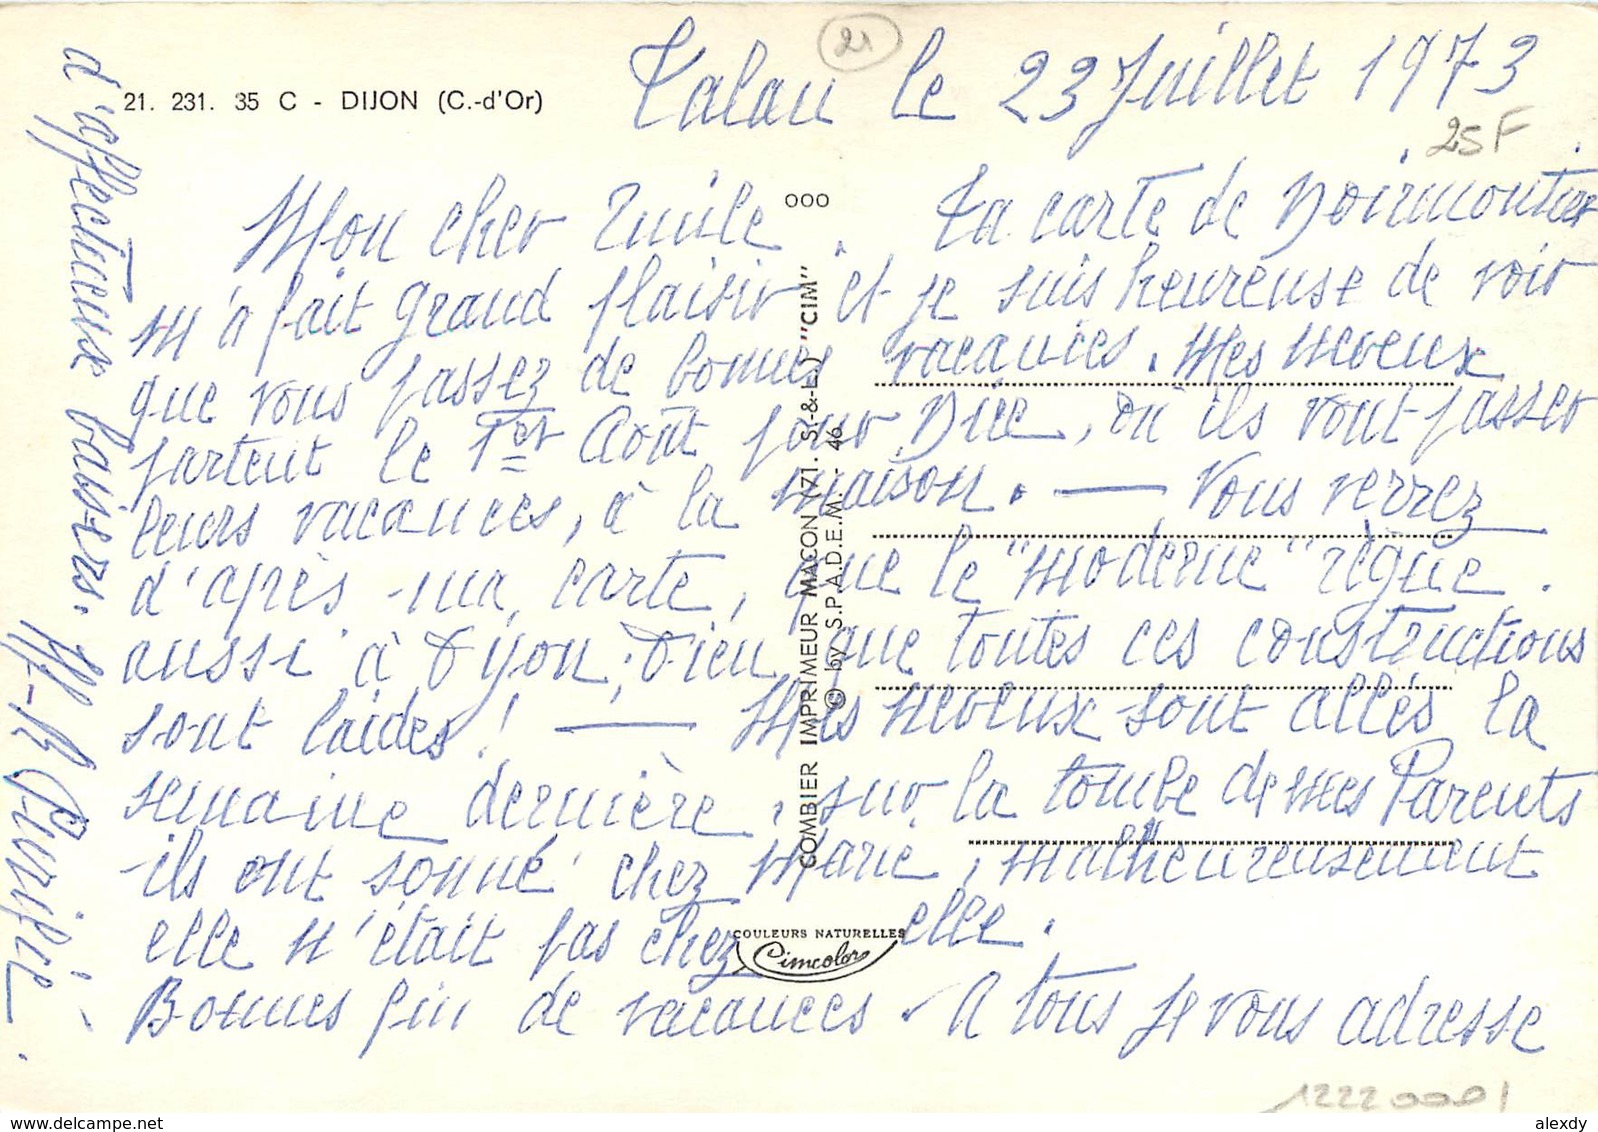 21. 231. 35 C - DIJON (C.-d'Or)
21
Talau le 23 Juillet 1973
25F
ooo
Mon cher Emile. La carte de Noirmoutier
m'a fait grand plaisir et je suis heureuse de voir
que vous passez de bonnes vacances. Mes neveux
partent le 1er Août pour Nice, où ils vont passer
leurs vacances, à la maison. — Vous verrez
d'après ma carte, que le "moderne" règne.
aussi à Dijon, Dieu, que toutes ces constructions
sont laides! — Mes neveux sont allés la
semaine dernière, sur la tombe de mes Parents
ils ont sonné chez Marie, malheureusement
elle n'était pas chez elle.
Bonnes fin de vacances. A tous je vous adresse
d'affectueux baisers.
COMBIER IMPRIMEUR MACON (71. S.-&-L.) "CIM"
© by S.P.A.D.E.M. - 46
COULEURS NATURELLES
Cimcolor
alexdy